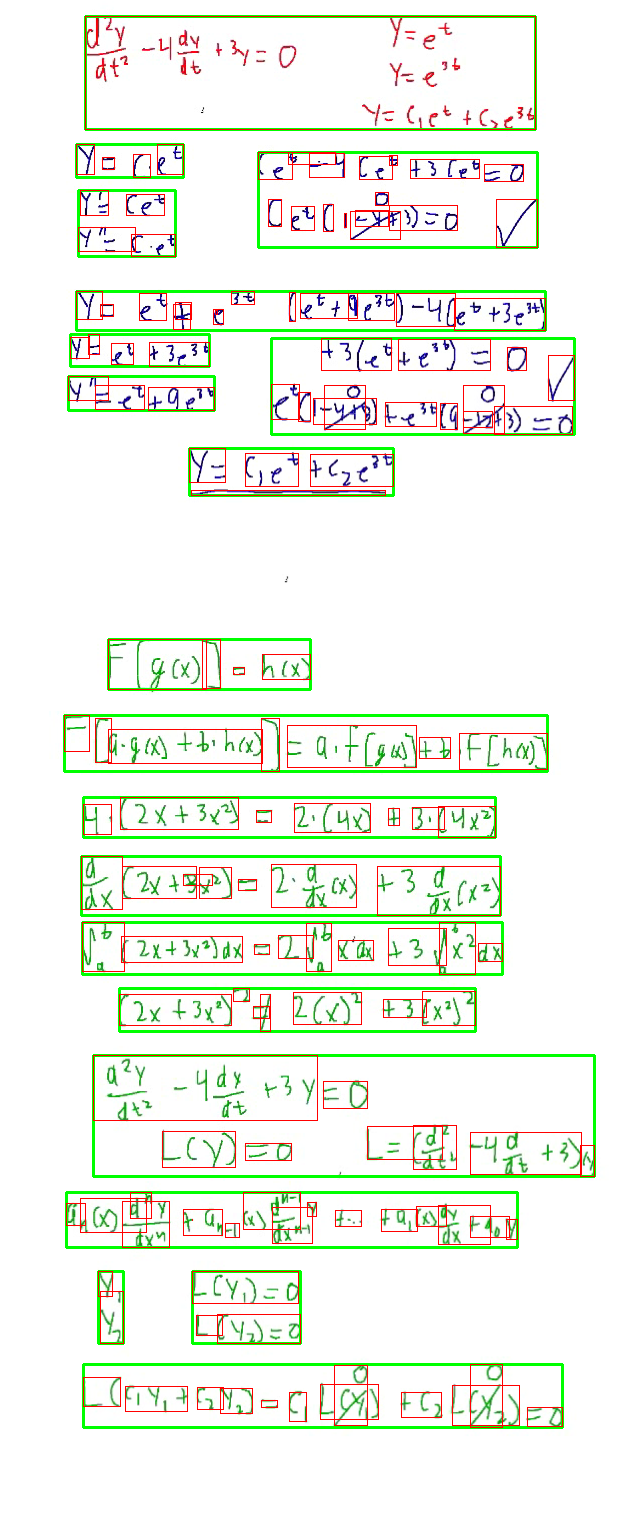 d²y/dt² - 4 dy/dt + 3y = 0
y = e^t
y = e^{3t}
y = c₁e^t + c₂e^{3t}
y = C·e^t
y' = Ce^t
y'' = C·e^t
Ce^t - 4 Ce^t + 3Ce^t = 0
Ce^t (1-4+3) = 0 ✓
0
y = e^t + e^{3t}
y' = e^t + 3e^{3t}
y'' = e^t + 9e^{3t}
(e^t + 9e^{3t}) - 4(e^t + 3e^{3t})
+ 3(e^t + e^{3t}) = 0 ✓
0 0
e^t (1-4+3) + e^{3t} (9-12+3) = 0
y = c₁e^t + c₂e^{3t}
F[g(x)] = h(x)
F[a·g(x) + b·h(x)] = a·F[g(x)] + b·F[h(x)]
4·(2x + 3x²) = 2·(4x) + 3·(4x²)
d/dx (2x + 3x²) = 2·d/dx(x) + 3 d/dx(x²)
∫_a^b (2x + 3x²)dx = 2∫_a^b x dx + 3∫_a^b x² dx
(2x + 3x²)² ≠ 2(x)² + 3(x²)²
d²y/dt² - 4 dx/dt + 3y = 0
L(y) = 0 L = (d²/dt² - 4 d/dt + 3)(y)
a_n(x) d^n y/dx^n + a_{n-1}(x) d^{n-1}y/dx^{n-1} + ... + a₁(x) dy/dx + a₀ y
y₁ L(y₁) = 0
y₂ L(y₂) = 0
0 0
L(c₁y₁ + c₂y₂) = c₁ L(y₁) + c₂ L(y₂) = 0